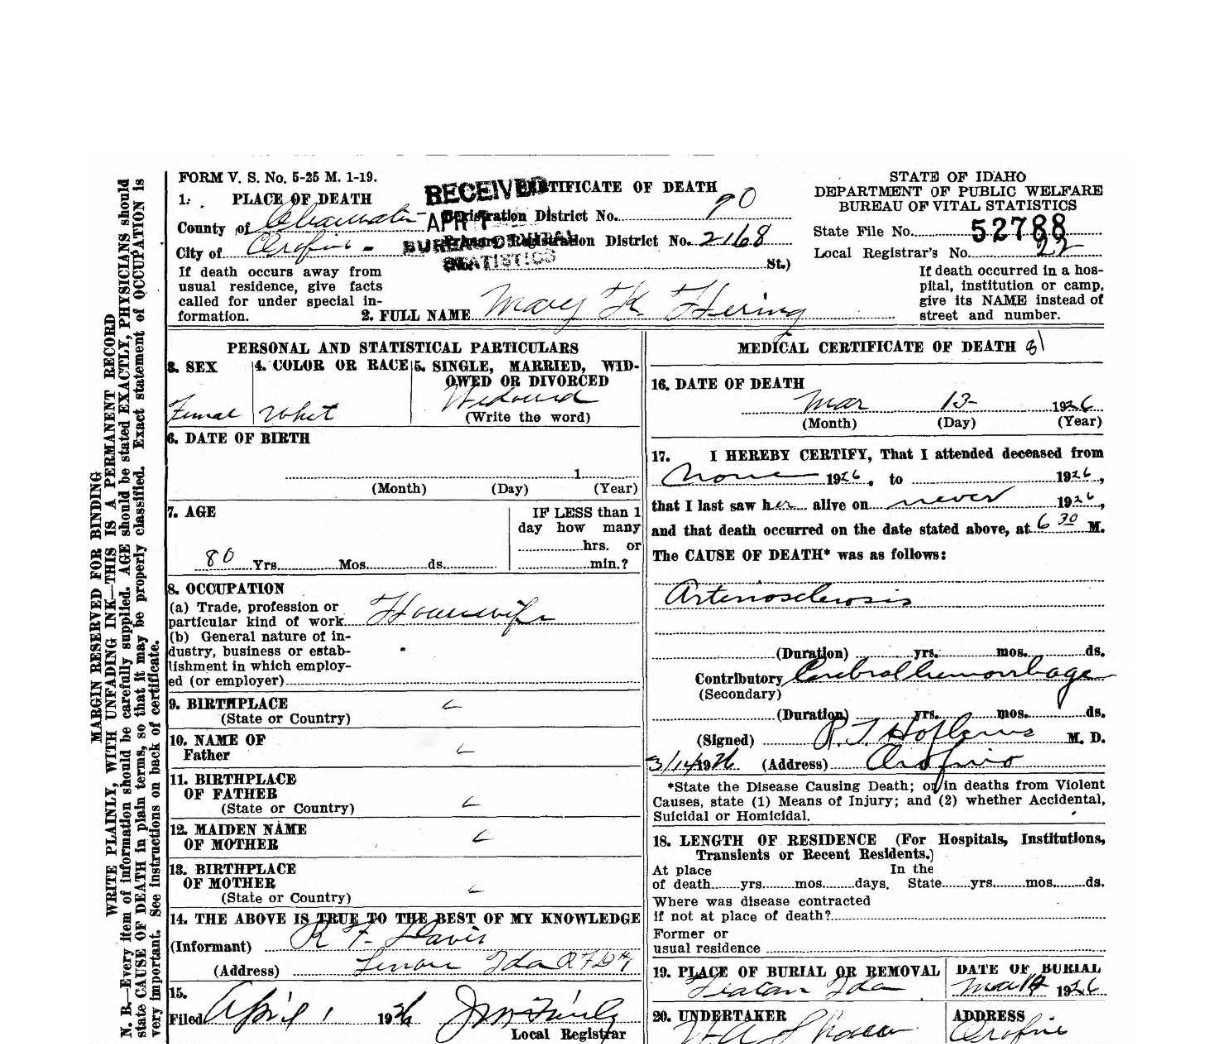 FORM V. S. No. 5-25 M. 1-19.
1. PLACE OF DEATH
County of Clearwater
City of Orofino
If death occurs away from
usual residence, give facts
called for under special in-
formation.
RECEIVED
APR
BUREAU OF VITAL
STATISTICS
CERTIFICATE OF DEATH
Registration District No. 90
Primary Registration District No. 2168
St.)
2. FULL NAME Mary K Hering
STATE OF IDAHO
DEPARTMENT OF PUBLIC WELFARE
BUREAU OF VITAL STATISTICS
State File No. 52788
Local Registrar's No. 22
If death occurred in a hos-
pital, institution or camp,
give its NAME instead of
street and number.
MARGIN RESERVED FOR BINDING
WRITE PLAINLY, WITH UNFADING INK—THIS IS A PERMANENT RECORD
N. B.—Every item of information should be carefully supplied. AGE should be stated EXACTLY, PHYSICIANS should
state CAUSE OF DEATH in plain terms, so that it may be properly classified. Exact statement of OCCUPATION is
very important. See instructions on back of certificate.
PERSONAL AND STATISTICAL PARTICULARS
3. SEX
Femal
4. COLOR OR RACE
Whit
5. SINGLE, MARRIED, WID-
OWED OR DIVORCED
Widowed
(Write the word)
6. DATE OF BIRTH
1
(Month) (Day) (Year)
7. AGE
80 Yrs. Mos. ds.
IF LESS than 1
day how many
hrs. or
min.?
8. OCCUPATION
(a) Trade, profession or
particular kind of work Housewife
(b) General nature of in-
dustry, business or estab-
lishment in which employ-
ed (or employer)
9. BIRTHPLACE
(State or Country)
10. NAME OF
Father
11. BIRTHPLACE
OF FATHER
(State or Country)
12. MAIDEN NAME
OF MOTHER
13. BIRTHPLACE
OF MOTHER
(State or Country)
14. THE ABOVE IS TRUE TO THE BEST OF MY KNOWLEDGE
(Informant) R F Davis
(Address) Lenore Ida RFD
15.
Filed April 1 1926
Local Registrar
MEDICAL CERTIFICATE OF DEATH 81
16. DATE OF DEATH
Mar 13 1926
(Month) (Day) (Year)
17. I HEREBY CERTIFY, That I attended deceased from
None 1926, to 1926,
that I last saw her alive on never 1926,
and that death occurred on the date stated above, at 6 30 M.
The CAUSE OF DEATH* was as follows:
Arteriosclerosis
(Duration) yrs. mos. ds.
Contributory Cerebral hemorrhage
(Secondary)
(Duration) yrs. mos. ds.
(Signed) M. D.
3/14/1926 (Address) Orofino
*State the Disease Causing Death; or in deaths from Violent
Causes, state (1) Means of Injury; and (2) whether Accidental,
Suicidal or Homicidal.
18. LENGTH OF RESIDENCE (For Hospitals, Institutions,
Transients or Recent Residents.)
At place In the
of death yrs. mos. days. State yrs. mos. ds.
Where was disease contracted
if not at place of death?
Former or
usual residence
19. PLACE OF BURIAL OR REMOVAL
Ida
DATE OF BURIAL
Mar 1926
20. UNDERTAKER
ADDRESS
Orofino